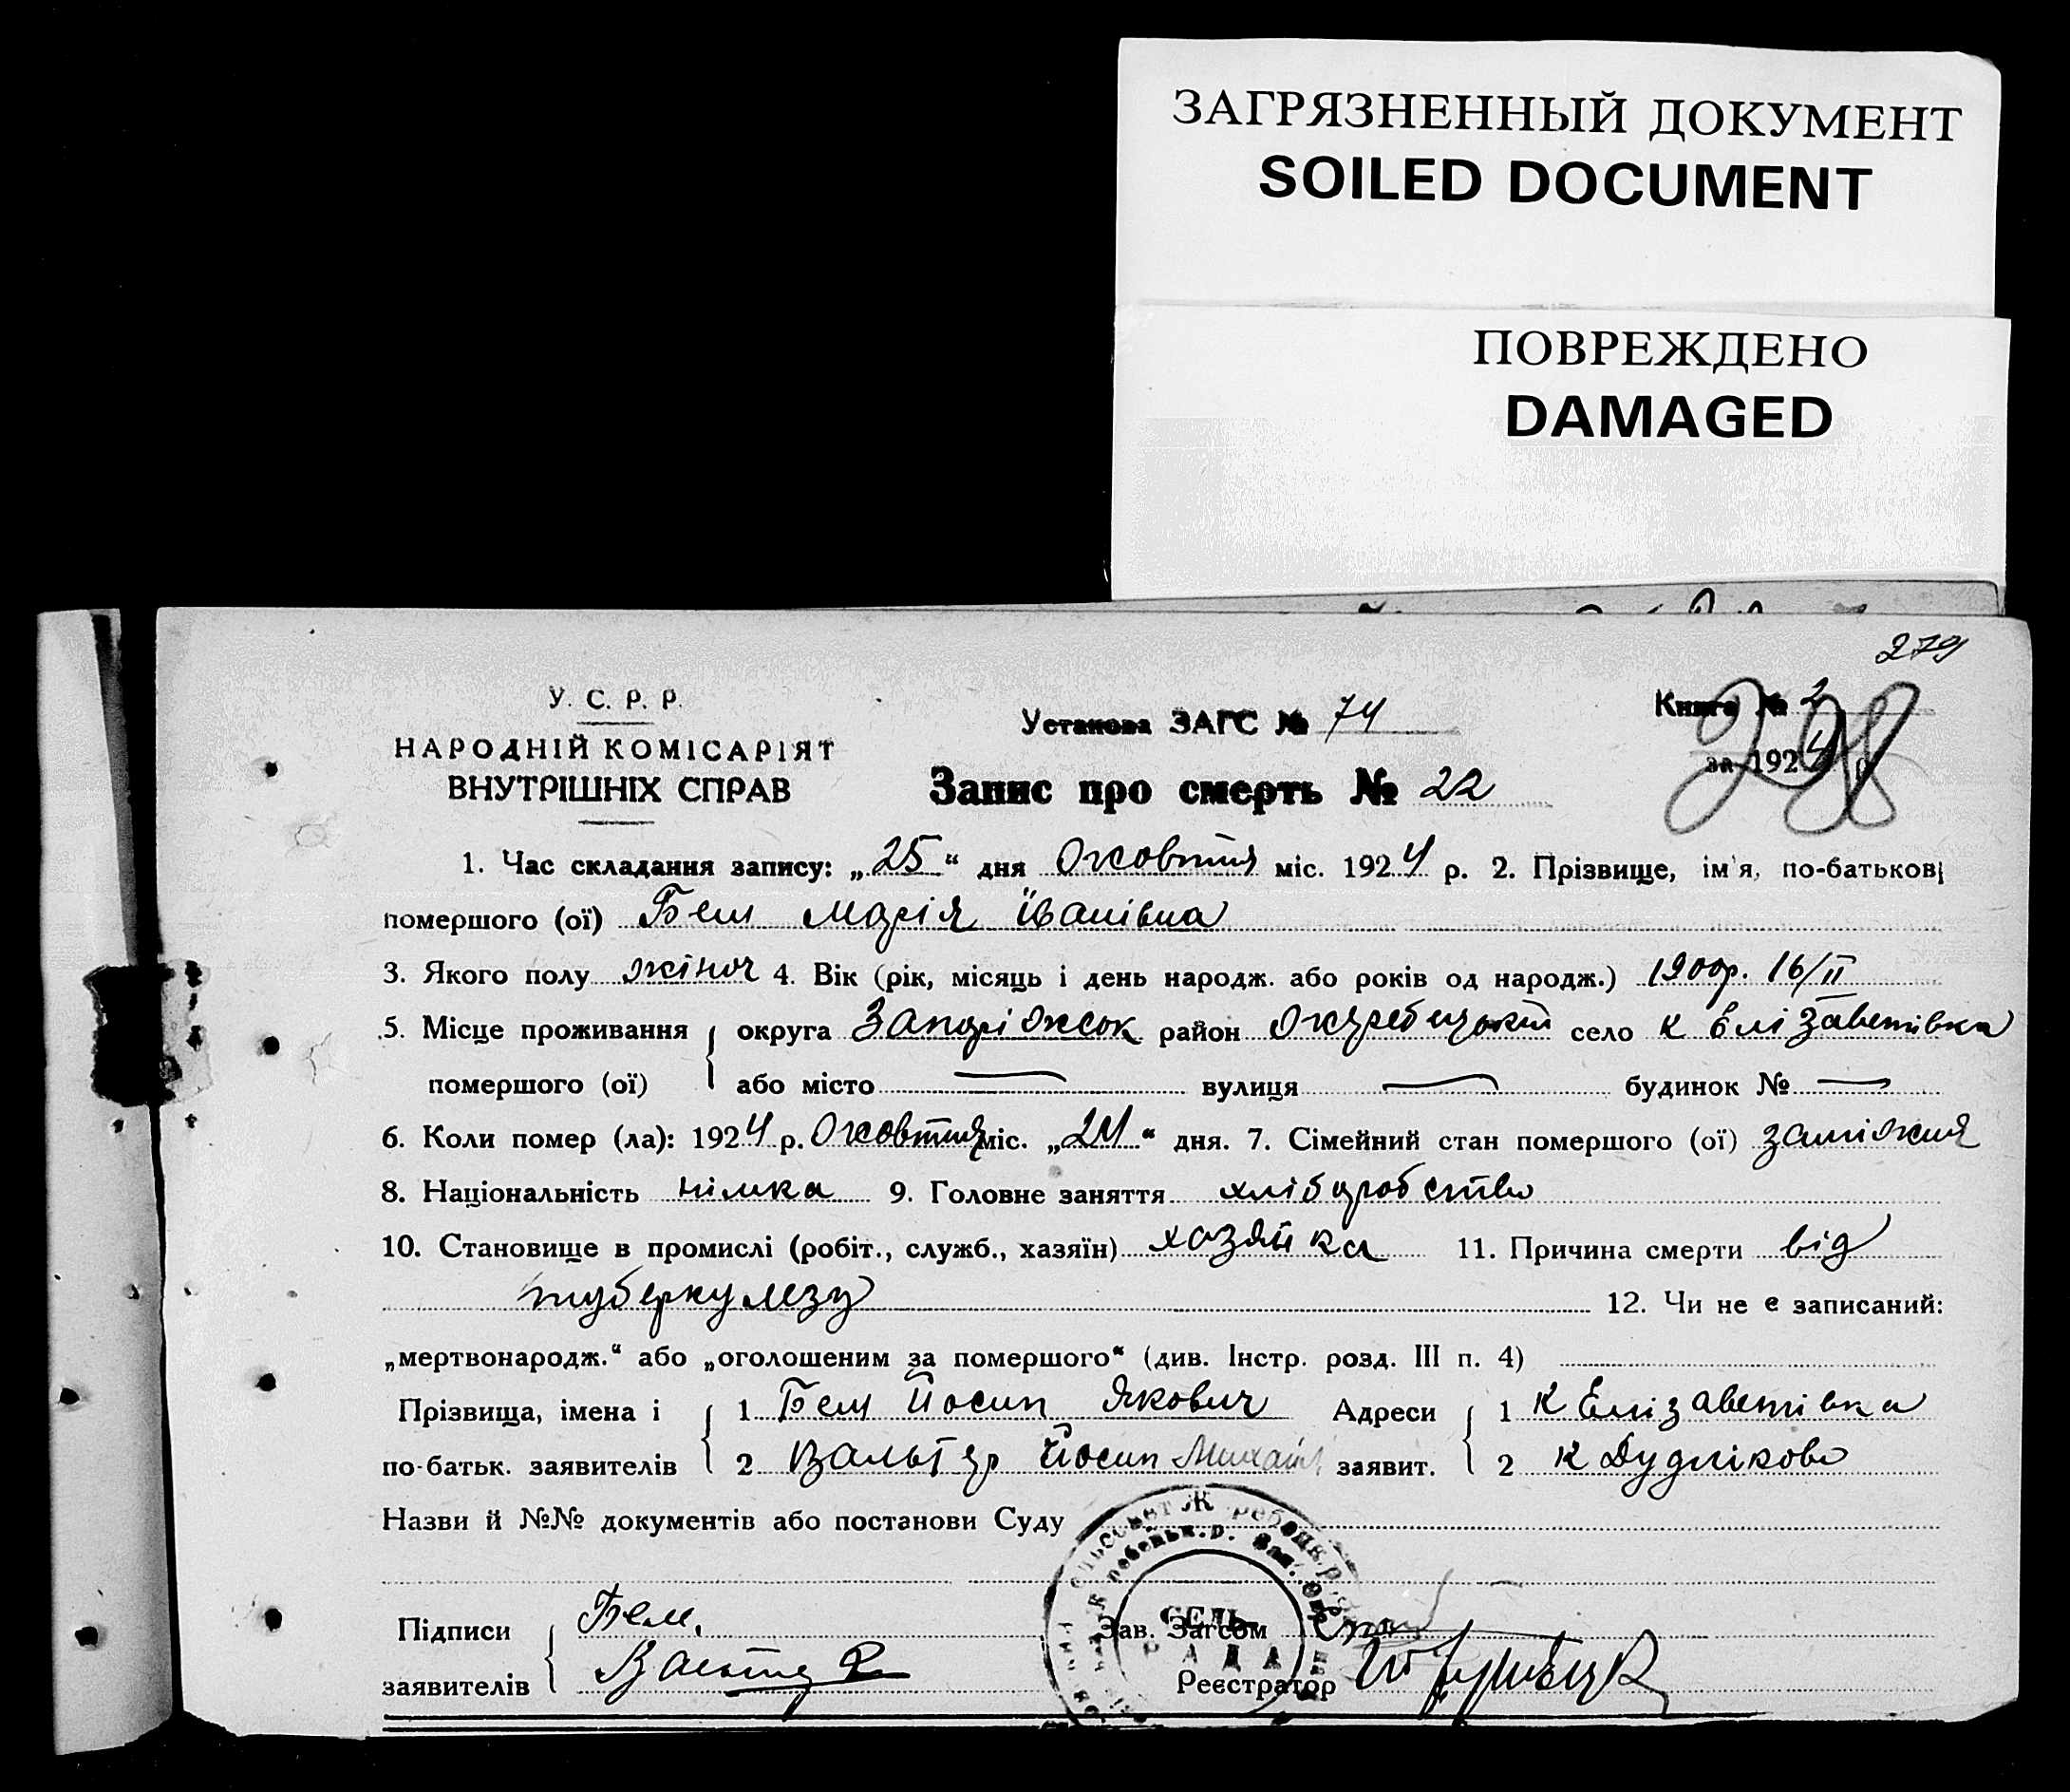 ЗАГРЯЗНЕННЫЙ ДОКУМЕНТ
SOILED DOCUMENT
ПОВРЕЖДЕНО
DAMAGED
279
298
У. С. Р. Р.
НАРОДНІЙ КОМІСАРІЯТ
ВНУТРІШНІХ СПРАВ
Установа ЗАГС № 74
Книга № 2
за 1924 р.
Запис про смерть № 22
1. Час складання запису: „25“ дня Жовтня міс. 1924 р. 2. Прізвище, ім'я, по-батькові
помершого (ої) Бем Марія Іванівна
3. Якого полу жіноч 4. Вік (рік, місяць і день народж. або років од народж.) 1900р. 16/II
5. Місце проживання округа Запоріжок район Жеребецький село к Єлізаветівка
помершого (ої) або місто — вулиця — будинок № —
6. Коли помер (ла): 1924 р. Жовтня міс. „24“ дня. 7. Сімейний стан помершого (ої) заміжня
8. Національність німка 9. Головне заняття хліборобство
10. Становище в промислі (робіт., служб., хазяїн) хазяйка 11. Причина смерти від
туберкулезу 12. Чи не є записаний:
„мертвонародж.“ або „оголошеним за помершого“ (див. Інстр. розд. III п. 4)
Прізвища, імена і 1 Бем Йосип Якович Адреси 1 к Єлізаветівка
по-батьк. заявителів 2 Вальтер Йосип Михайл заявит. 2 к Дудніково
Назви й №№ документів або постанови Суду
Підписи Бем. Зав. Загсом
заявителів Реєстратор
СЕЛЬ
РАДА